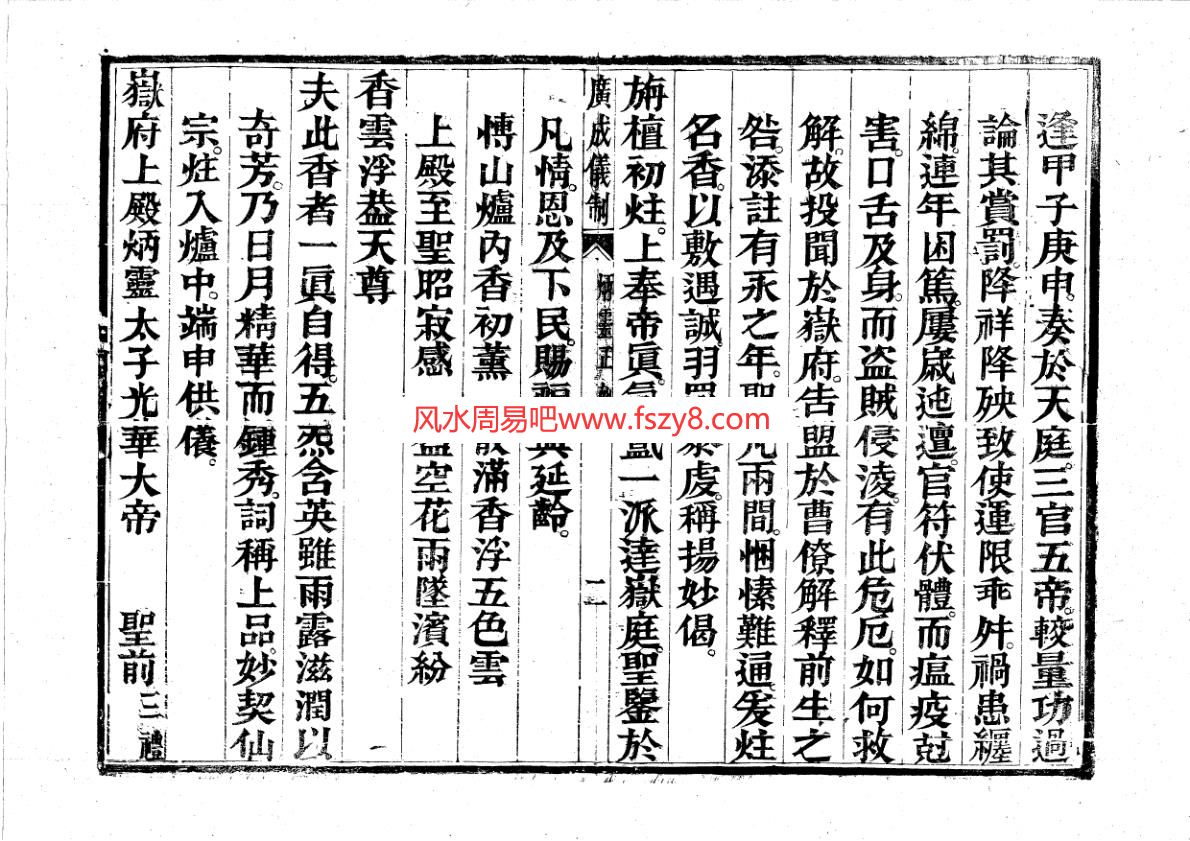 逢甲子庚申。奏於天庭。三官五帝。較量功過
論其賞罰。降祥降殃致使運限乖舛。禍患纏
綿。連年困篤。屢歲迍邅。官符伏體。而瘟疫尅
害。口舌及身。而盜賊侵淩。有此危厄。如何救
解。故投聞於嶽府。告盟於曹僚。解釋前生之
咎。添註有永之年。聖凡兩間。悃愫難通。爰炷
名香。以敷遇誠。羽
泰虔。稱揚妙偈。
旃檀初炷。上奉帝眞。
一派達嶽庭。聖鑒於
廣成儀制
二
凡情。恩及下民。賜福
延齡。
愽山爐內香初薰
散滿香浮五色雲
上殿至聖昭寂感
空花雨墜濱紛
香雲浮葢天尊
夫此香者一眞自得。五炁含英雖雨露滋潤以
奇芳。乃日月精華而鍾秀。詞稱上品。妙契仙
宗。炷入爐中。端申供儀。
嶽府上殿炳靈太子光華大帝 聖前三禮
风水周易吧www.fszy8.com